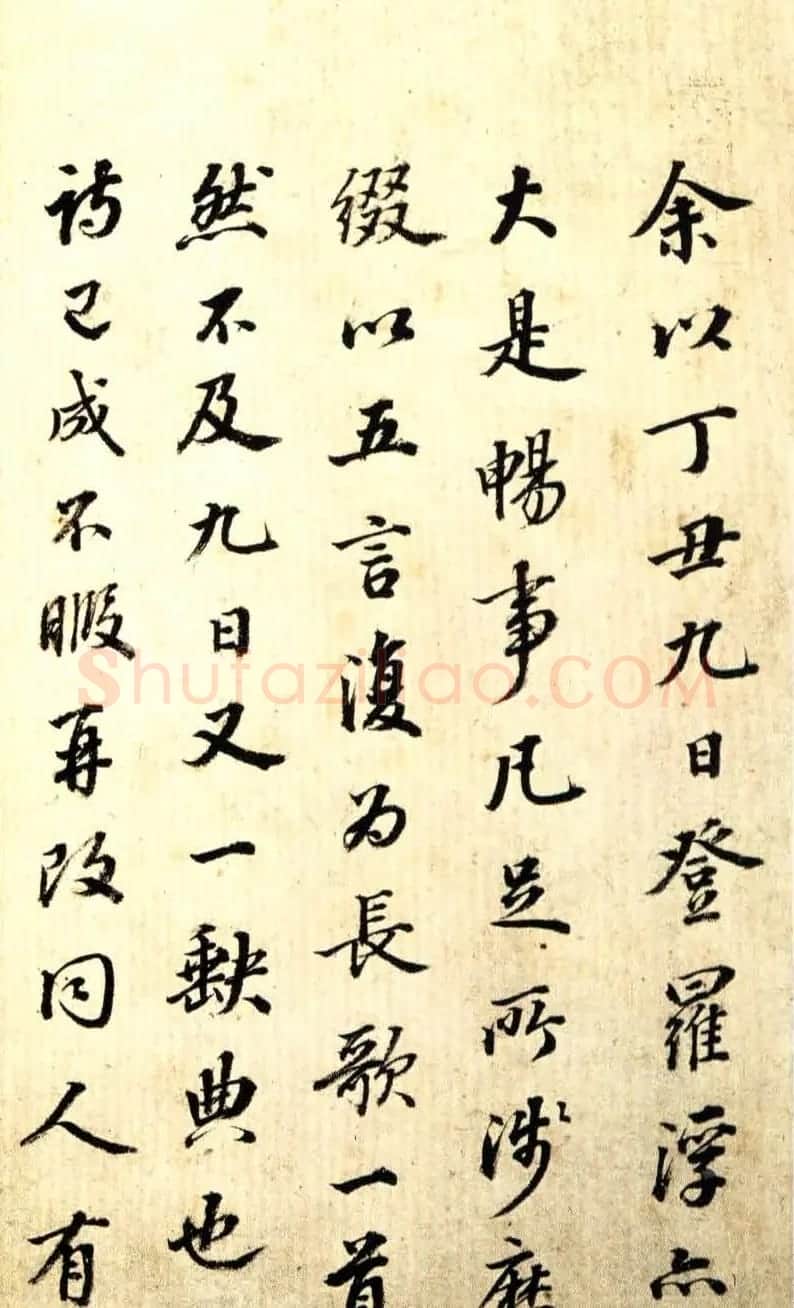 余以丁丑九日登羅浮亦
大是暢事凡足所涉靡
綴以五言復為長歌一首
然不及九日又一缺典也
詩已成不暇再改同人有
Shufaziliao.COM